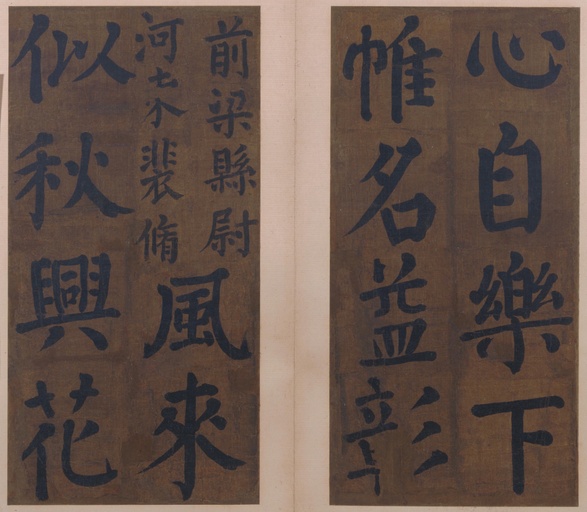 心自樂下
帷名益彰
前梁縣尉
河裴脩
風來
似秋興花